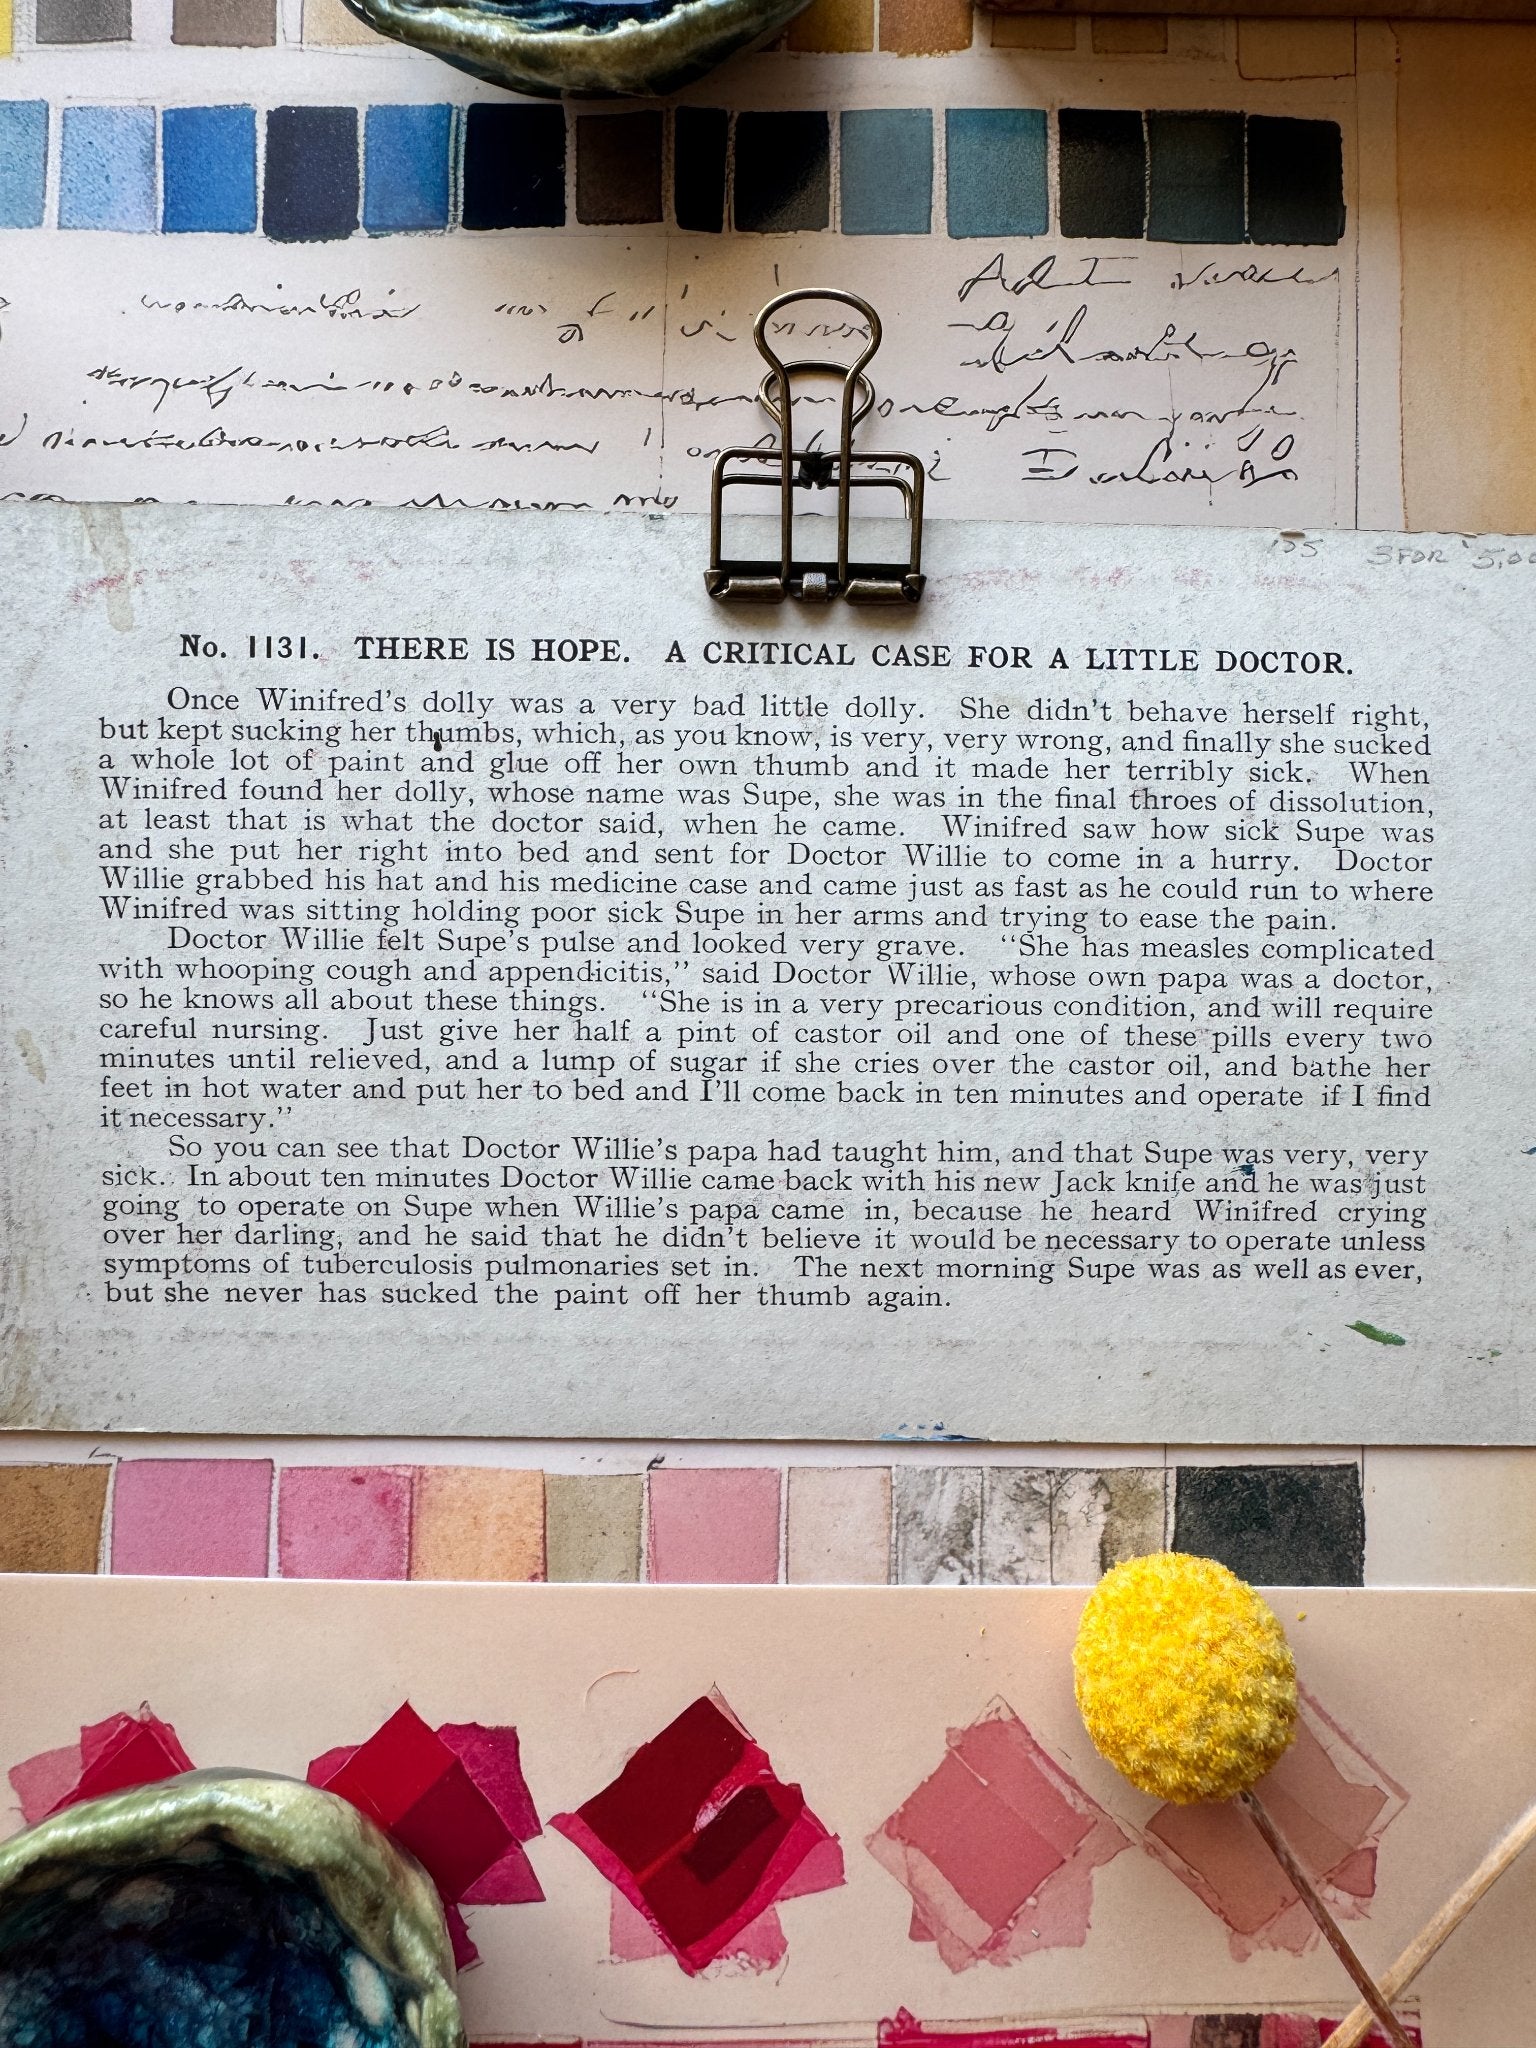 155 3 FOR 5.00
No. 1131. THERE IS HOPE. A CRITICAL CASE FOR A LITTLE DOCTOR.
Once Winifred's dolly was a very bad little dolly. She didn't behave herself right,
but kept sucking her thumbs, which, as you know, is very, very wrong, and finally she sucked
a whole lot of paint and glue off her own thumb and it made her terribly sick. When
Winifred found her dolly, whose name was Supe, she was in the final throes of dissolution,
at least that is what the doctor said, when he came. Winifred saw how sick Supe was
and she put her right into bed and sent for Doctor Willie to come in a hurry. Doctor
Willie grabbed his hat and his medicine case and came just as fast as he could run to where
Winifred was sitting holding poor sick Supe in her arms and trying to ease the pain.
Doctor Willie felt Supe's pulse and looked very grave. "She has measles complicated
with whooping cough and appendicitis," said Doctor Willie, whose own papa was a doctor,
so he knows all about these things. "She is in a very precarious condition, and will require
careful nursing. Just give her half a pint of castor oil and one of these pills every two
minutes until relieved, and a lump of sugar if she cries over the castor oil, and bathe her
feet in hot water and put her to bed and I'll come back in ten minutes and operate if I find
it necessary."
So you can see that Doctor Willie's papa had taught him, and that Supe was very, very
sick. In about ten minutes Doctor Willie came back with his new Jack knife and he was just
going to operate on Supe when Willie's papa came in, because he heard Winifred crying
over her darling, and he said that he didn't believe it would be necessary to operate unless
symptoms of tuberculosis pulmonaries set in. The next morning Supe was as well as ever,
but she never has sucked the paint off her thumb again.